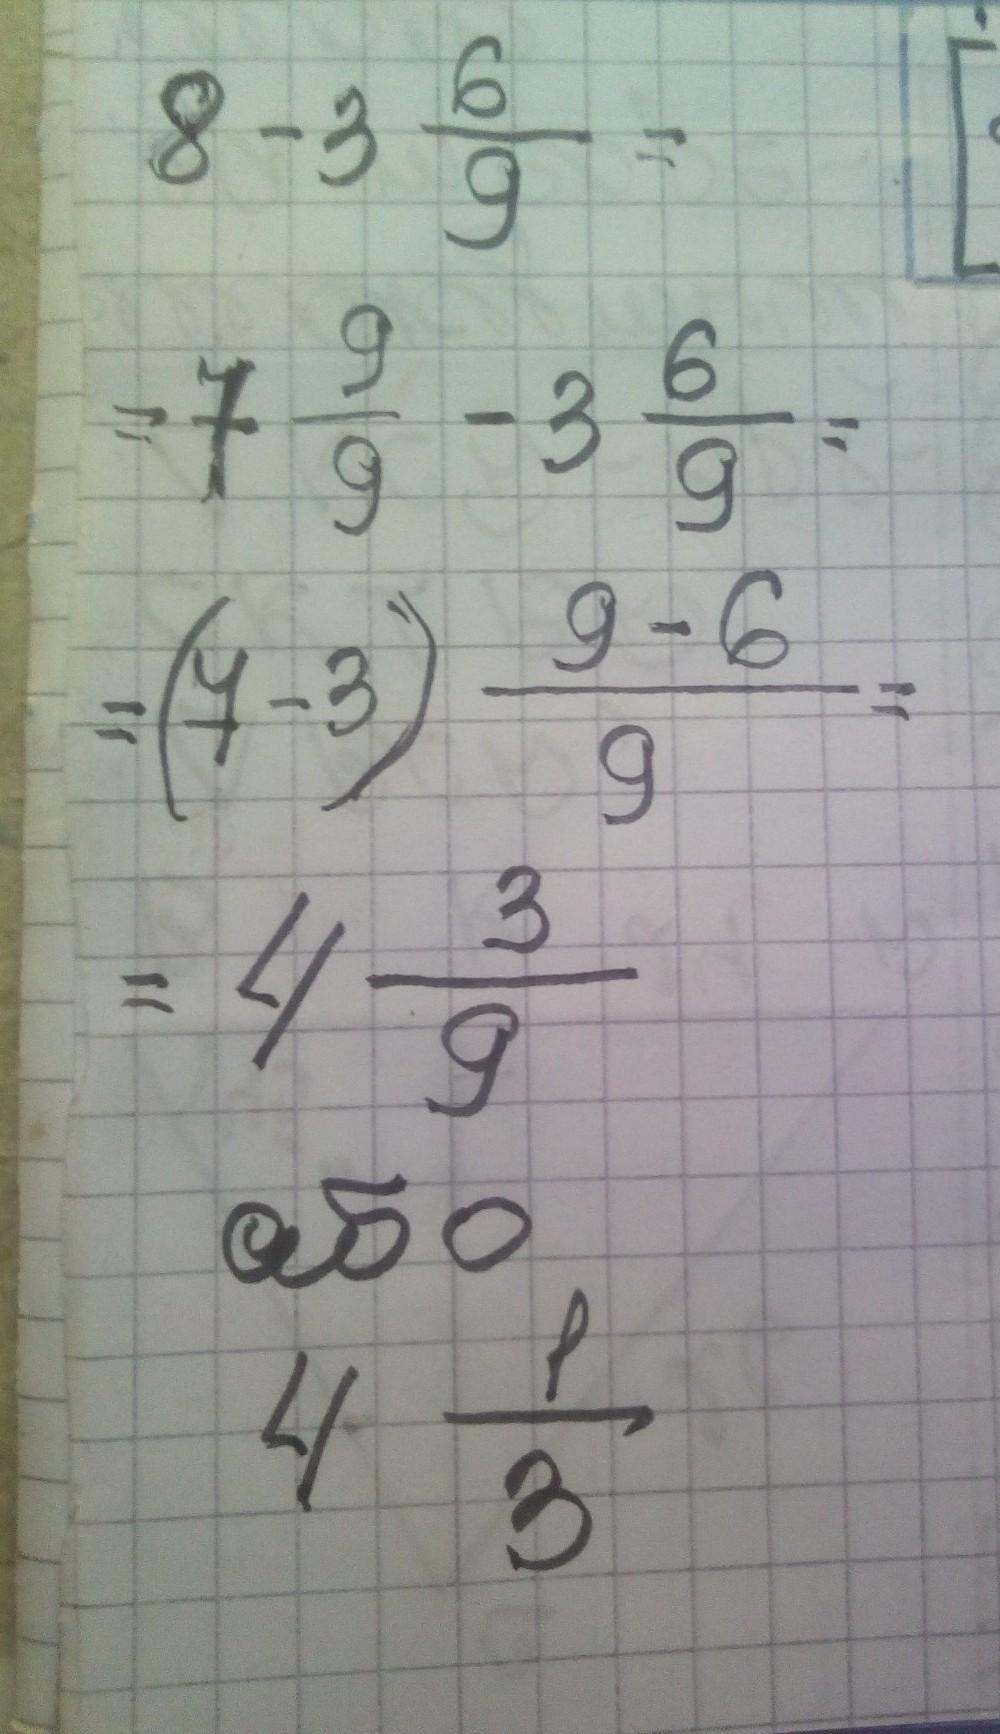 8 - 3 6/9 =
= 7 9/9 - 3 6/9 =
= (7 - 3) 9 - 6/9 =
= 4 3/9
або
4 1/3